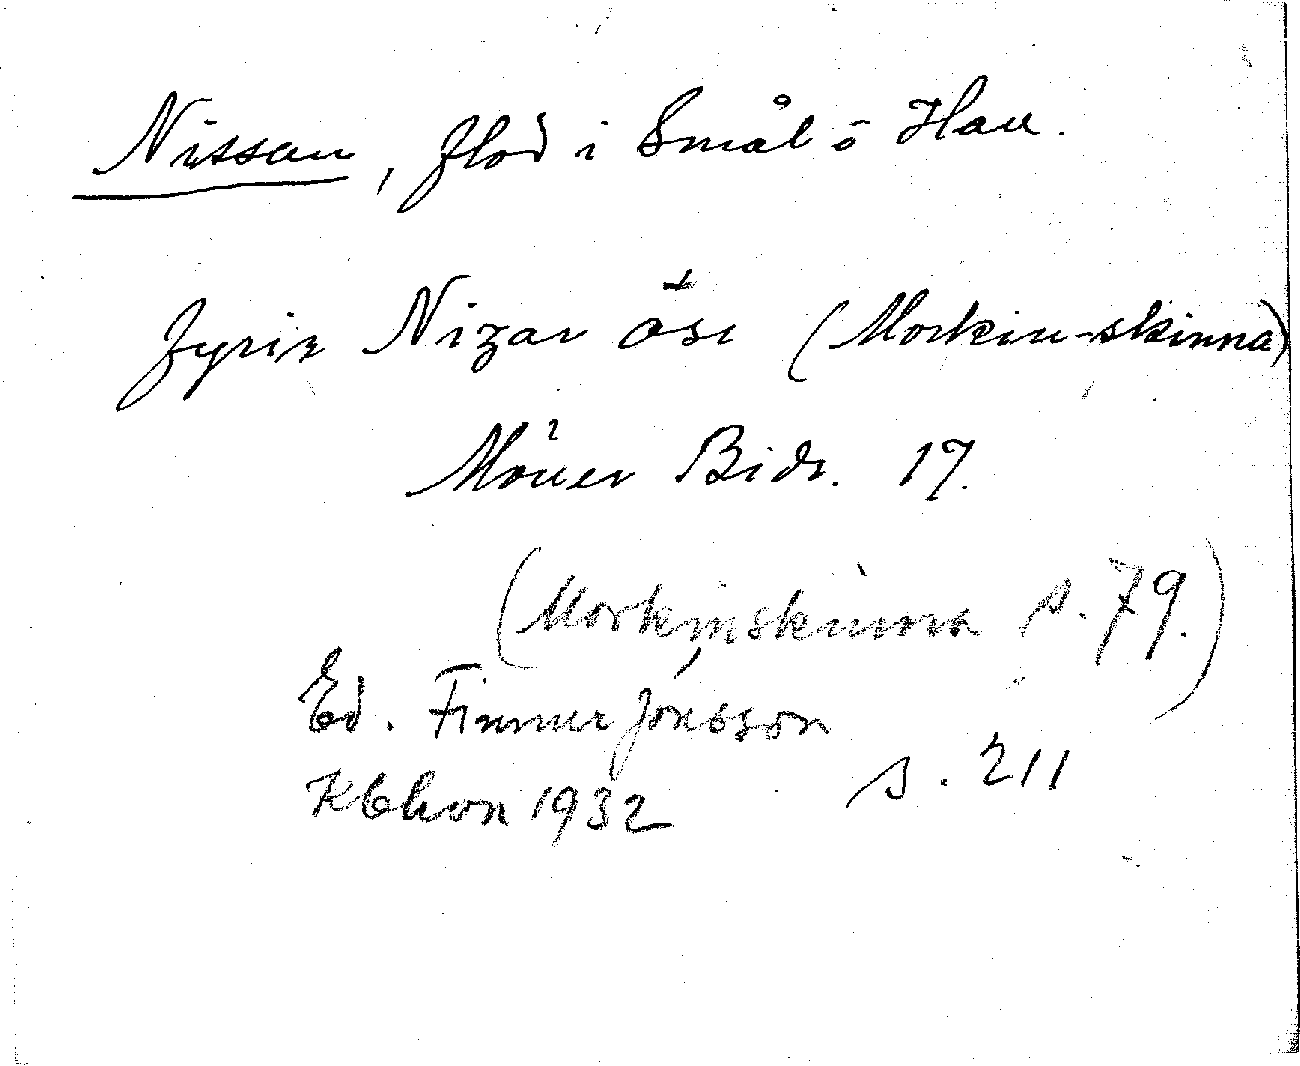 Nissan, flod i Smål o Hall.
fyrir Nizar ósi (Morkin-skinna)
Mörner Bidr. 17.
(Morkinskinna s. 79.)
Ed. Finnur Jónsson
Kbhvn 1932 s. 211